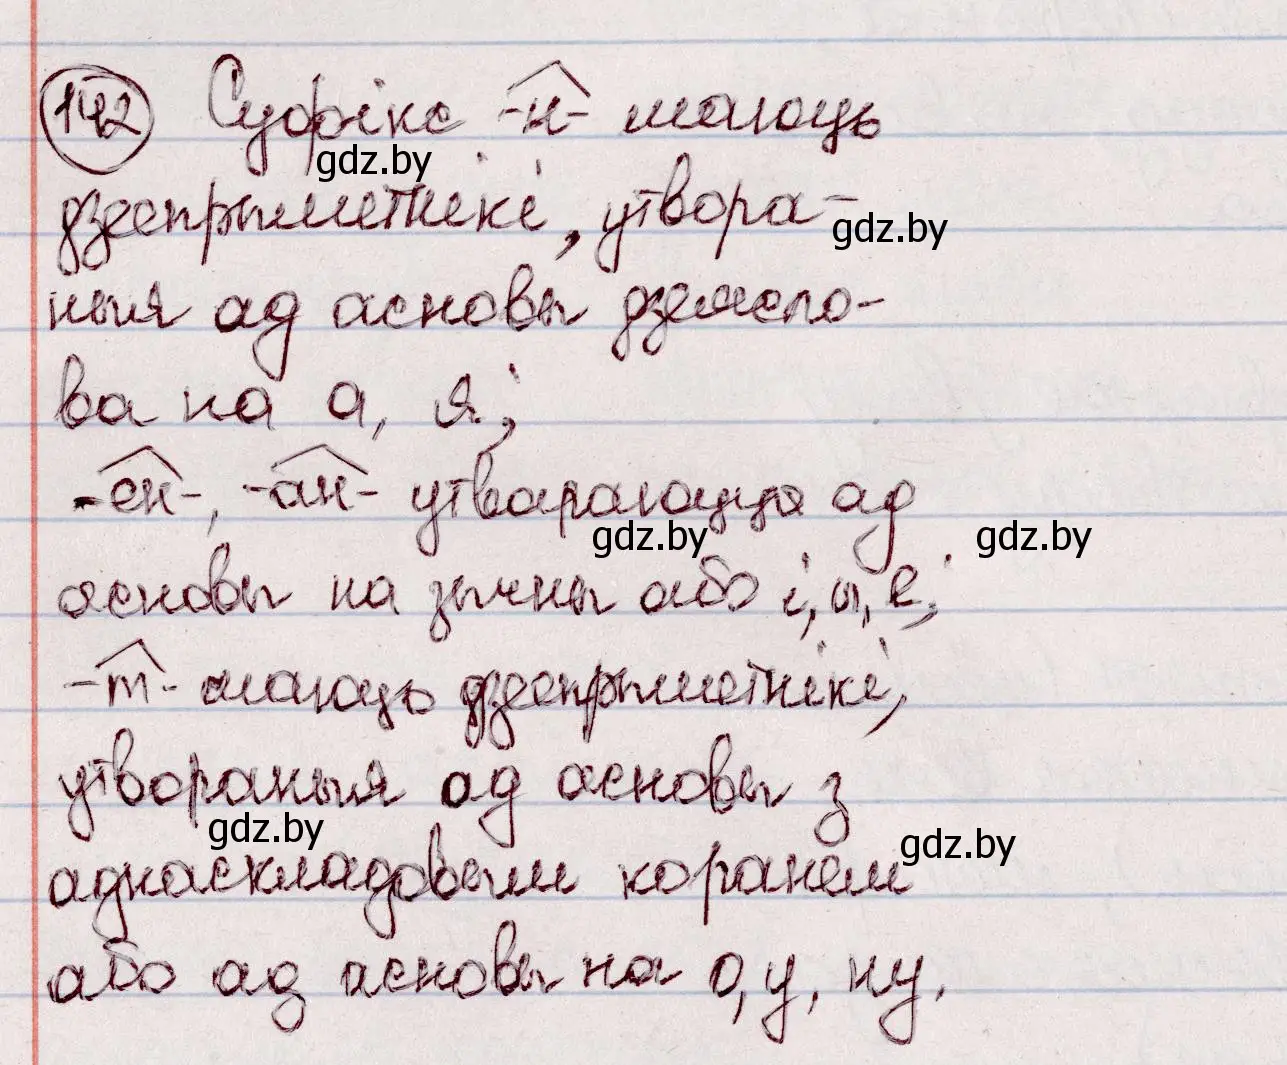 142 Суфікс -н- маюць
gdz.by
дзеепрыметнікі, утвора-
gdz.by
ныя ад асновы дзеясло-
ва на а, я;
-ен-, -ан- утвараюцца ад
gdz.by gdz.by
асновы на зычны або і, ы, е;
-т- маюць дзеепрыметнікі,
утвораныя ад асновы з
gdz.by gdz.by
аднаскладовым коранем
або ад асновы на о, у, ну.